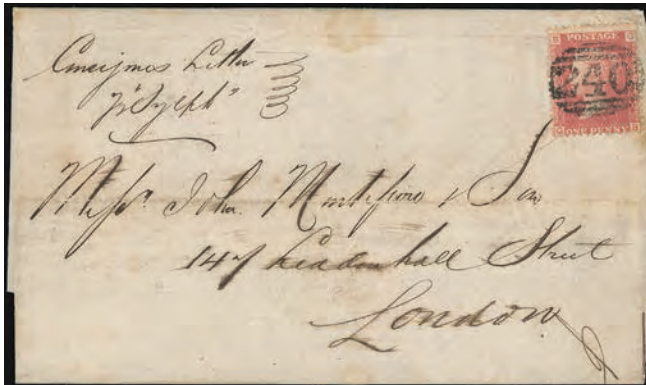 Consignees Letter
POSTAGE
240
ONE PENNY
Messrs. John Montefiore & Son
147 Leadenhall Street
London